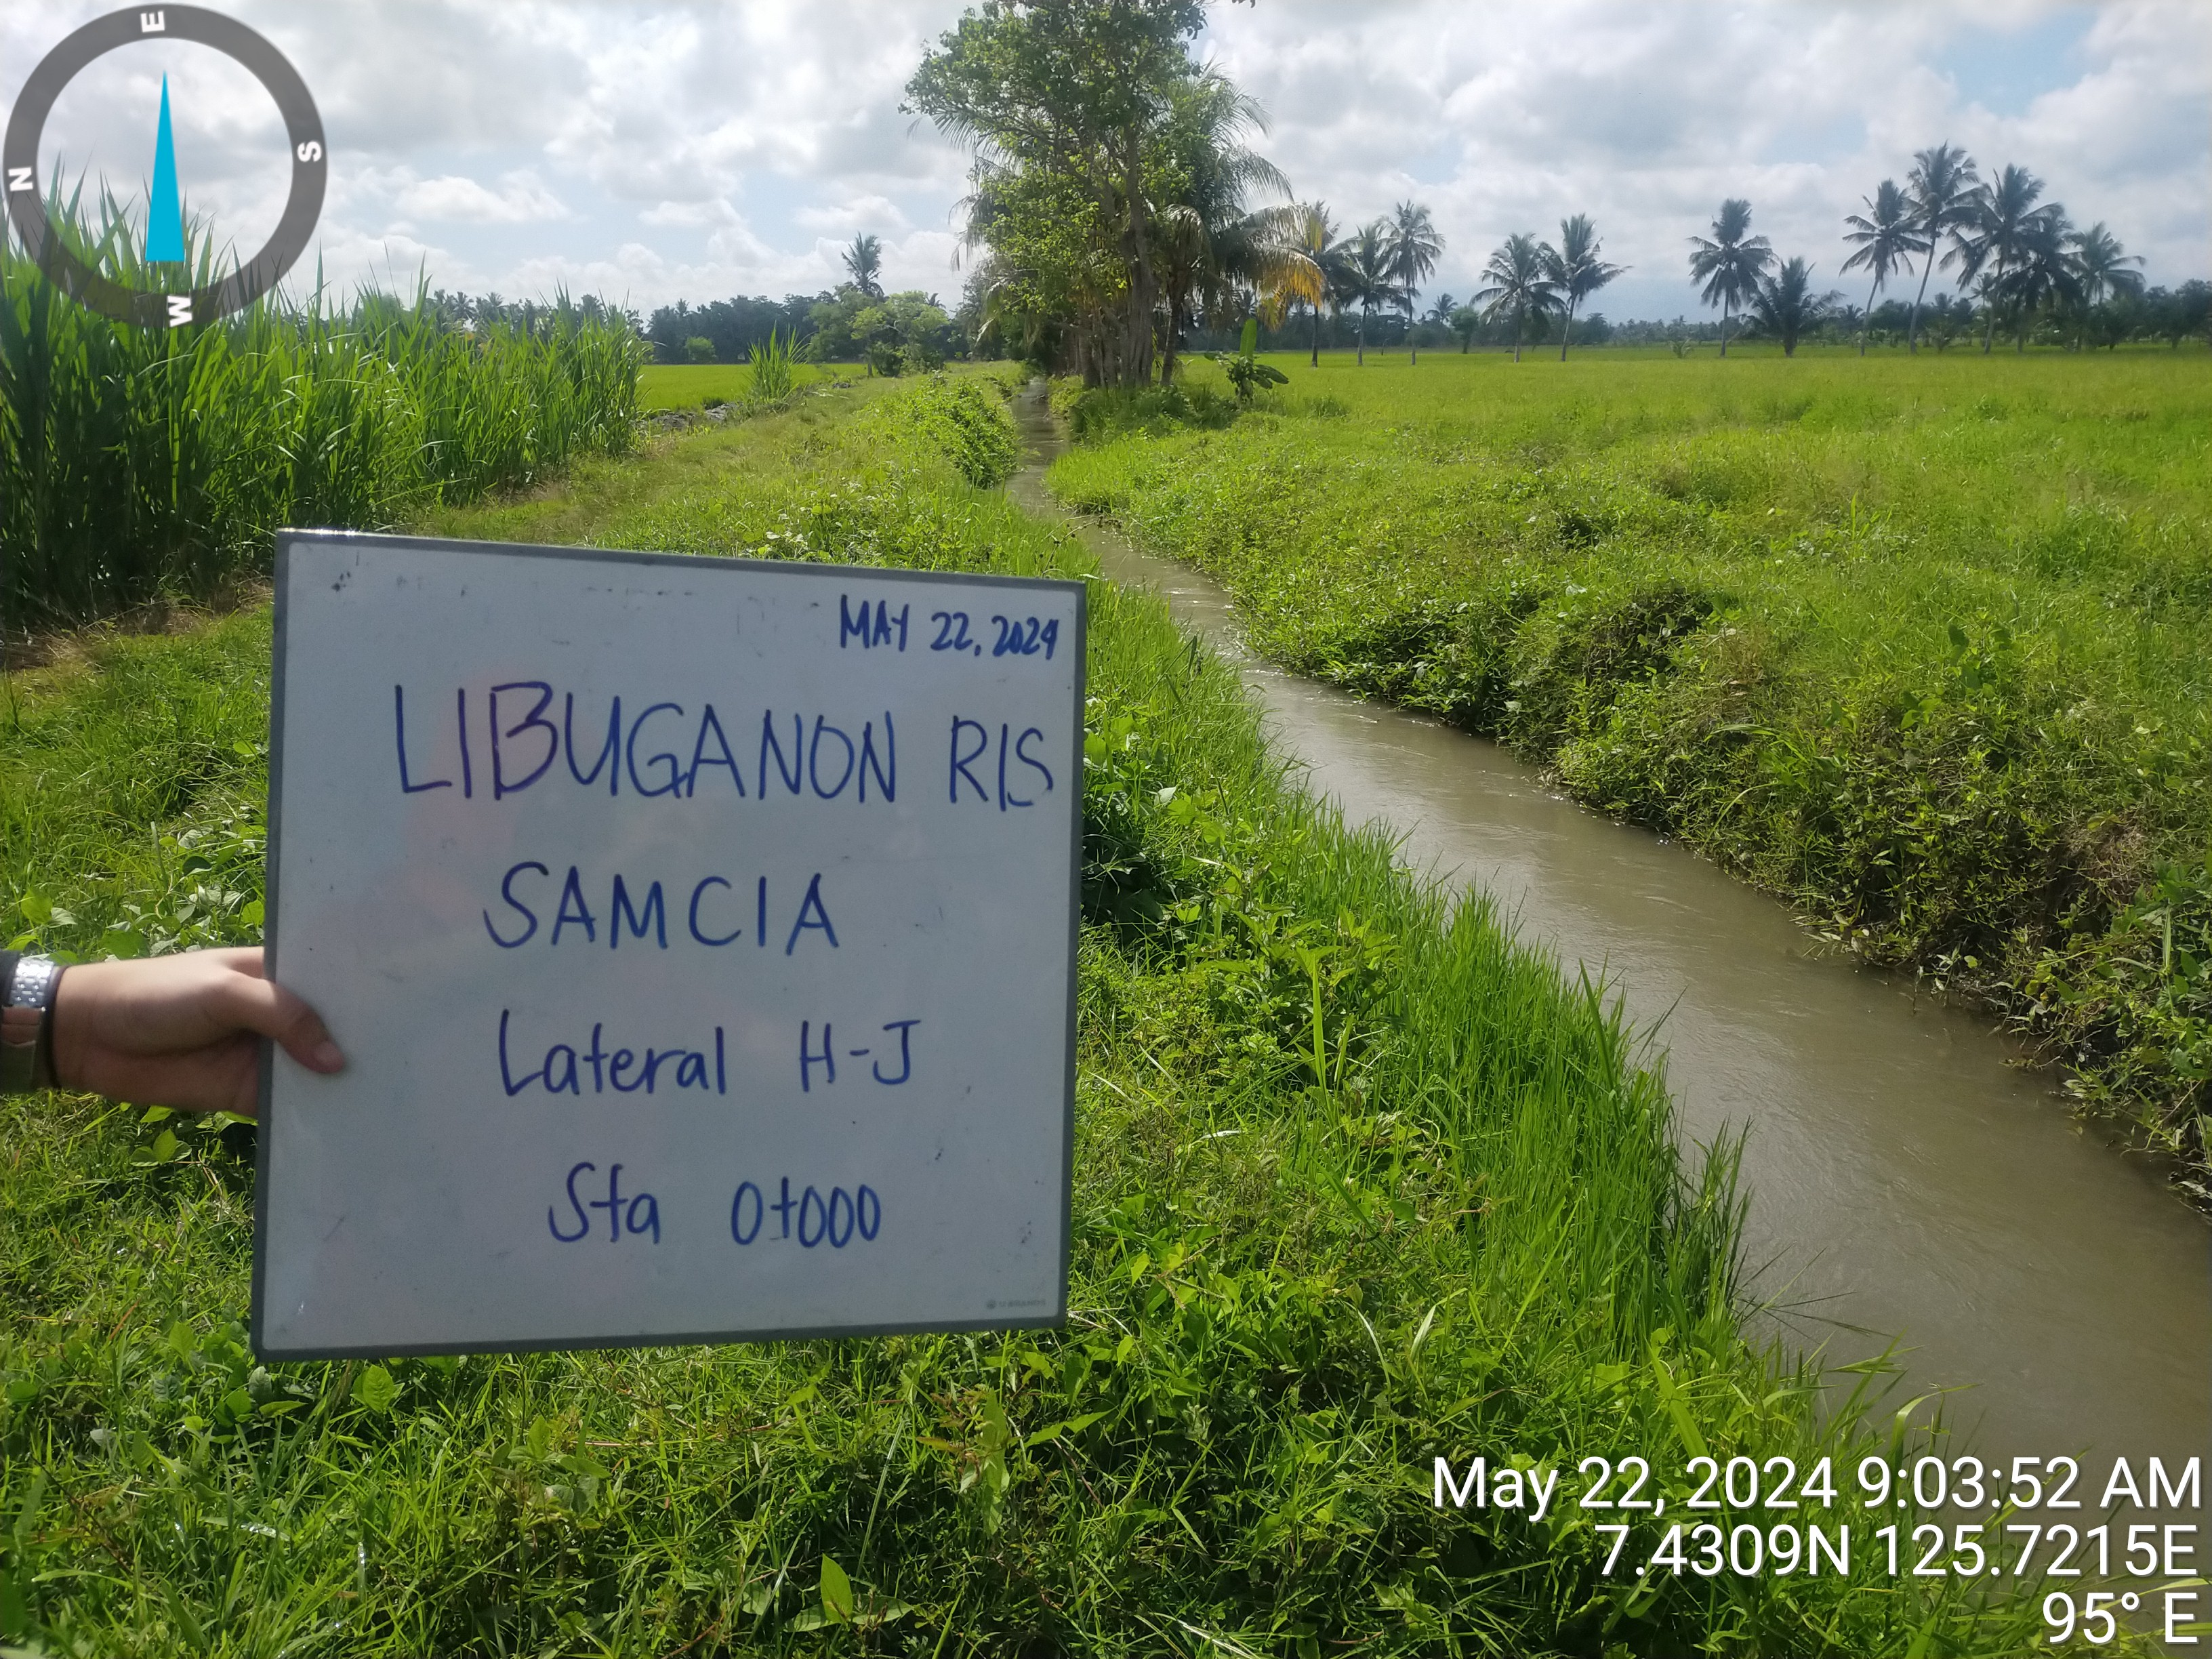 E
S
N
W
MAY 22, 2024
LIBUGANON RIS
SAMCIA
Lateral H-J
Sta 0+000
May 22, 2024 9:03:52 AM
7.4309N 125.7215E
95° E